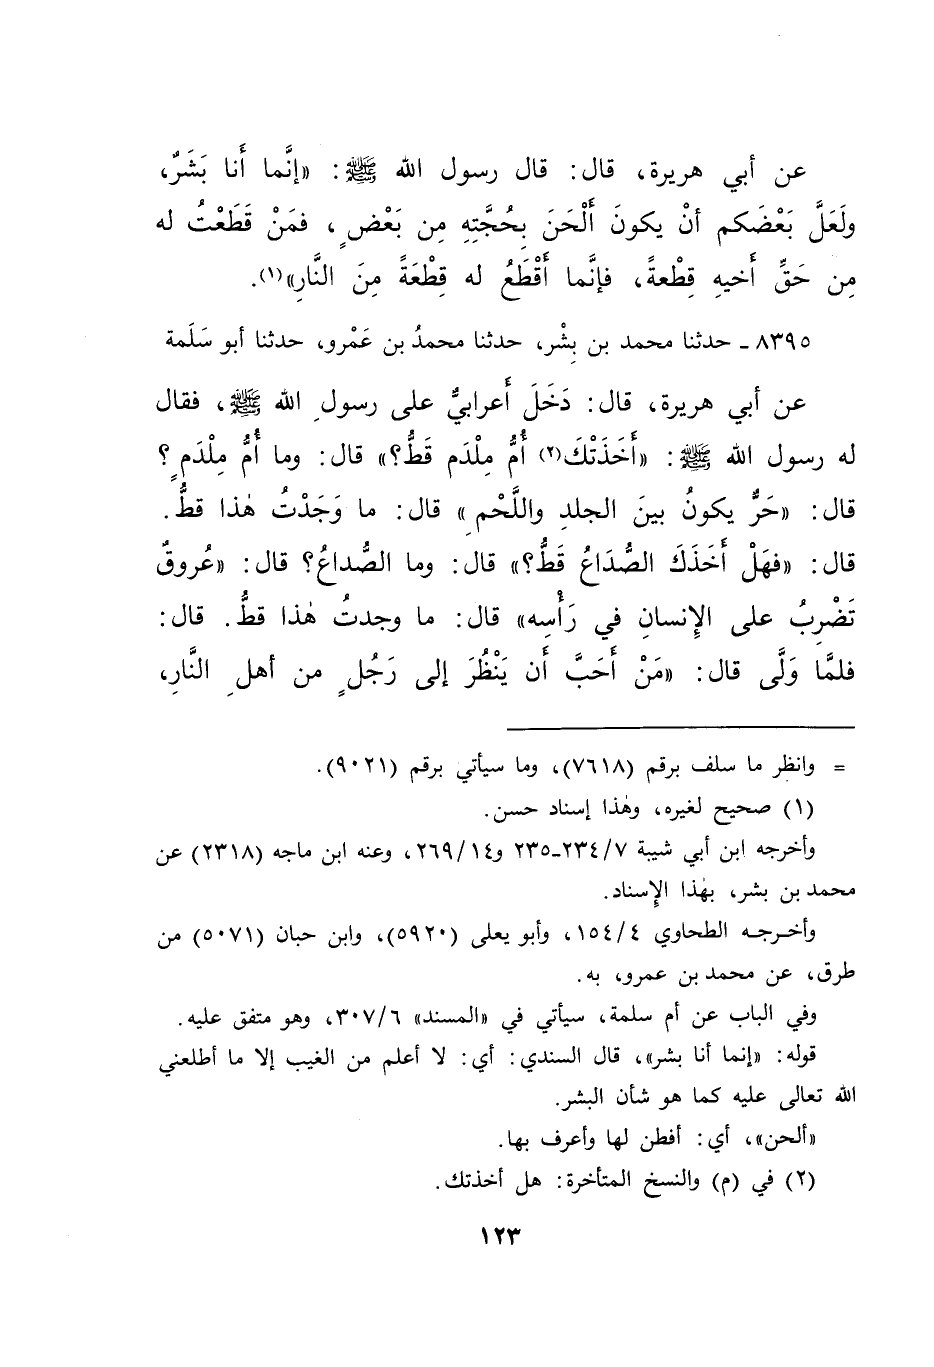 عن أبي هريرة، قال: قال رسول الله ﷺ: «إنَّما أَنا بَشَرٌ،
ولَعَلَّ بَعْضَكم أنْ يكونَ أَلْحَنَ بِحُجَّتِهِ مِن بَعْضٍ، فمَنْ قَطَعْتُ له
مِن حَقِّ أَخيهِ قِطْعةً، فإنَّما أَقْطَعُ له قِطْعَةً مِنَ النَّارِ»(١).
٨٣٩٥ ـ حدثنا محمد بن بِشْر، حدثنا محمدُ بن عَمْرو، حدثنا أبو سَلَمة
عن أبي هريرة، قال: دَخَلَ أَعرابيٌّ على رسولِ الله ﷺ، فقال
له رسول الله ﷺ: «أَخَذَتْكَ(٢) أُمُّ مِلْدَم قَطُّ؟» قال: وما أُمُّ مِلْدَمٍ؟
قال: «حَرٌّ يكونُ بينَ الجلدِ واللَّحْمِ» قال: ما وَجَدْتُ هٰذا قطُّ.
قال: «فهَلْ أَخَذَكَ الصُّدَاعُ قَطُّ؟» قال: وما الصُّداعُ؟ قال: «عُروقٌ
تَضْرِبُ على الإِنسانِ في رَأْسِه» قال: ما وجدتُ هٰذا قطُّ. قال:
فلمَّا وَلَّى قال: «مَنْ أَحَبَّ أَن يَنْظُرَ إلى رَجُلٍ من أهلِ النَّارِ،
= وانظر ما سلف برقم (٧٦١٨)، وما سيأتي برقم (٩٠٢١).
(١) صحيح لغيره، وهٰذا إسناد حسن.
وأخرجه ابن أبي شيبة ٧/٢٣٤-٢٣٥ و١٤/٢٦٩، وعنه ابن ماجه (٢٣١٨) عن
محمد بن بشر، بهٰذا الإِسناد.
وأخرجه الطحاوي ٤/١٥٤، وأبو يعلى (٥٩٢٠)، وابن حبان (٥٠٧١) من
طرق، عن محمد بن عمرو، به.
وفي الباب عن أم سلمة، سيأتي في «المسند» ٦/٣٠٧، وهو متفق عليه.
قوله: «إنما أنا بشر»، قال السندي: أي: لا أعلم من الغيب إلا ما أطلعني
الله تعالى عليه كما هو شأن البشر.
«ألحن»، أي: أفطن لها وأعرف بها.
(٢) في (م) والنسخ المتأخرة: هل أخذتك.
١٢٣